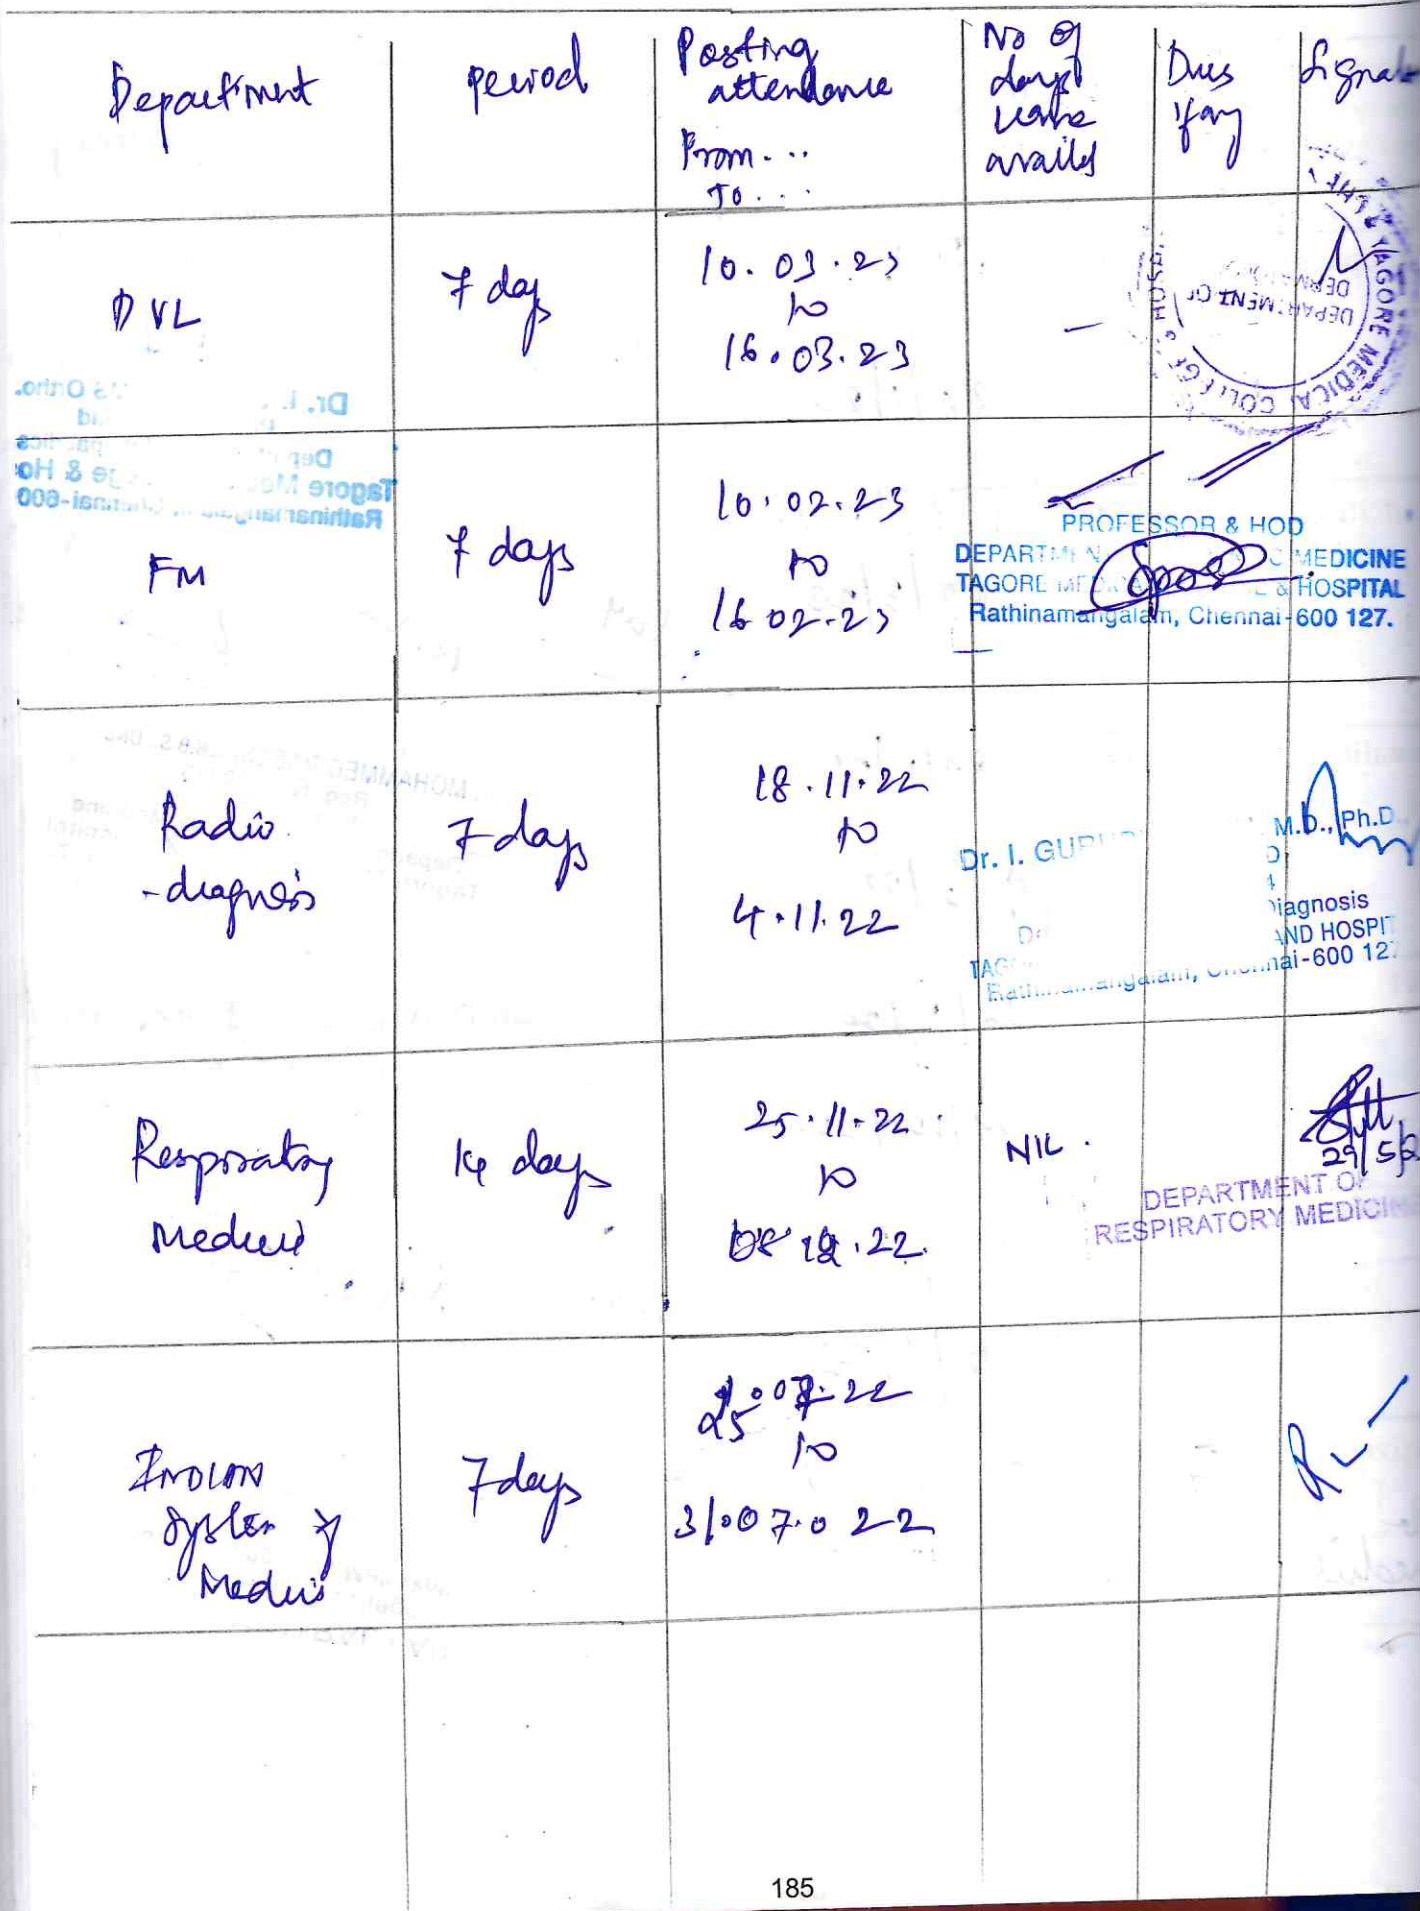 Department
period
Posting
attendance
From...
To...
No of
days
leave
availed
Dues
if any
DVL
7 days
10.03.23
to
16.03.23
—
TAGORE MEDICAL COLLEGE & HOSP
DEPARTMENT OF
DERMA
FM
7 days
10.02.23
to
16 02.23
—
PROFESSOR & HOD
DEPARTMEN MEDICINE
TAGORE MEDICA & HOSPITAL
Rathinamangalam, Chennai-600 127.
Radio
-diagnosis
7 days
18.11.22
to
4.11.22
Dr. I. GURU M.D., Ph.D.
Diagnosis
TAG AND HOSPIT
Rathinamangalam, Chennai-600 12
Respiratory
Medicine
14 days
25.11.22
to
08 12.22.
NIL.
29/5/2
DEPARTMENT OF
RESPIRATORY MEDICIN
INDIAN
System of
Medicine
7 days
25.07.22
to
31.07.22
Dr. I. MS Ortho.
Tagore Me ge & Ho
Rathinamangalam, Chennai-600
185